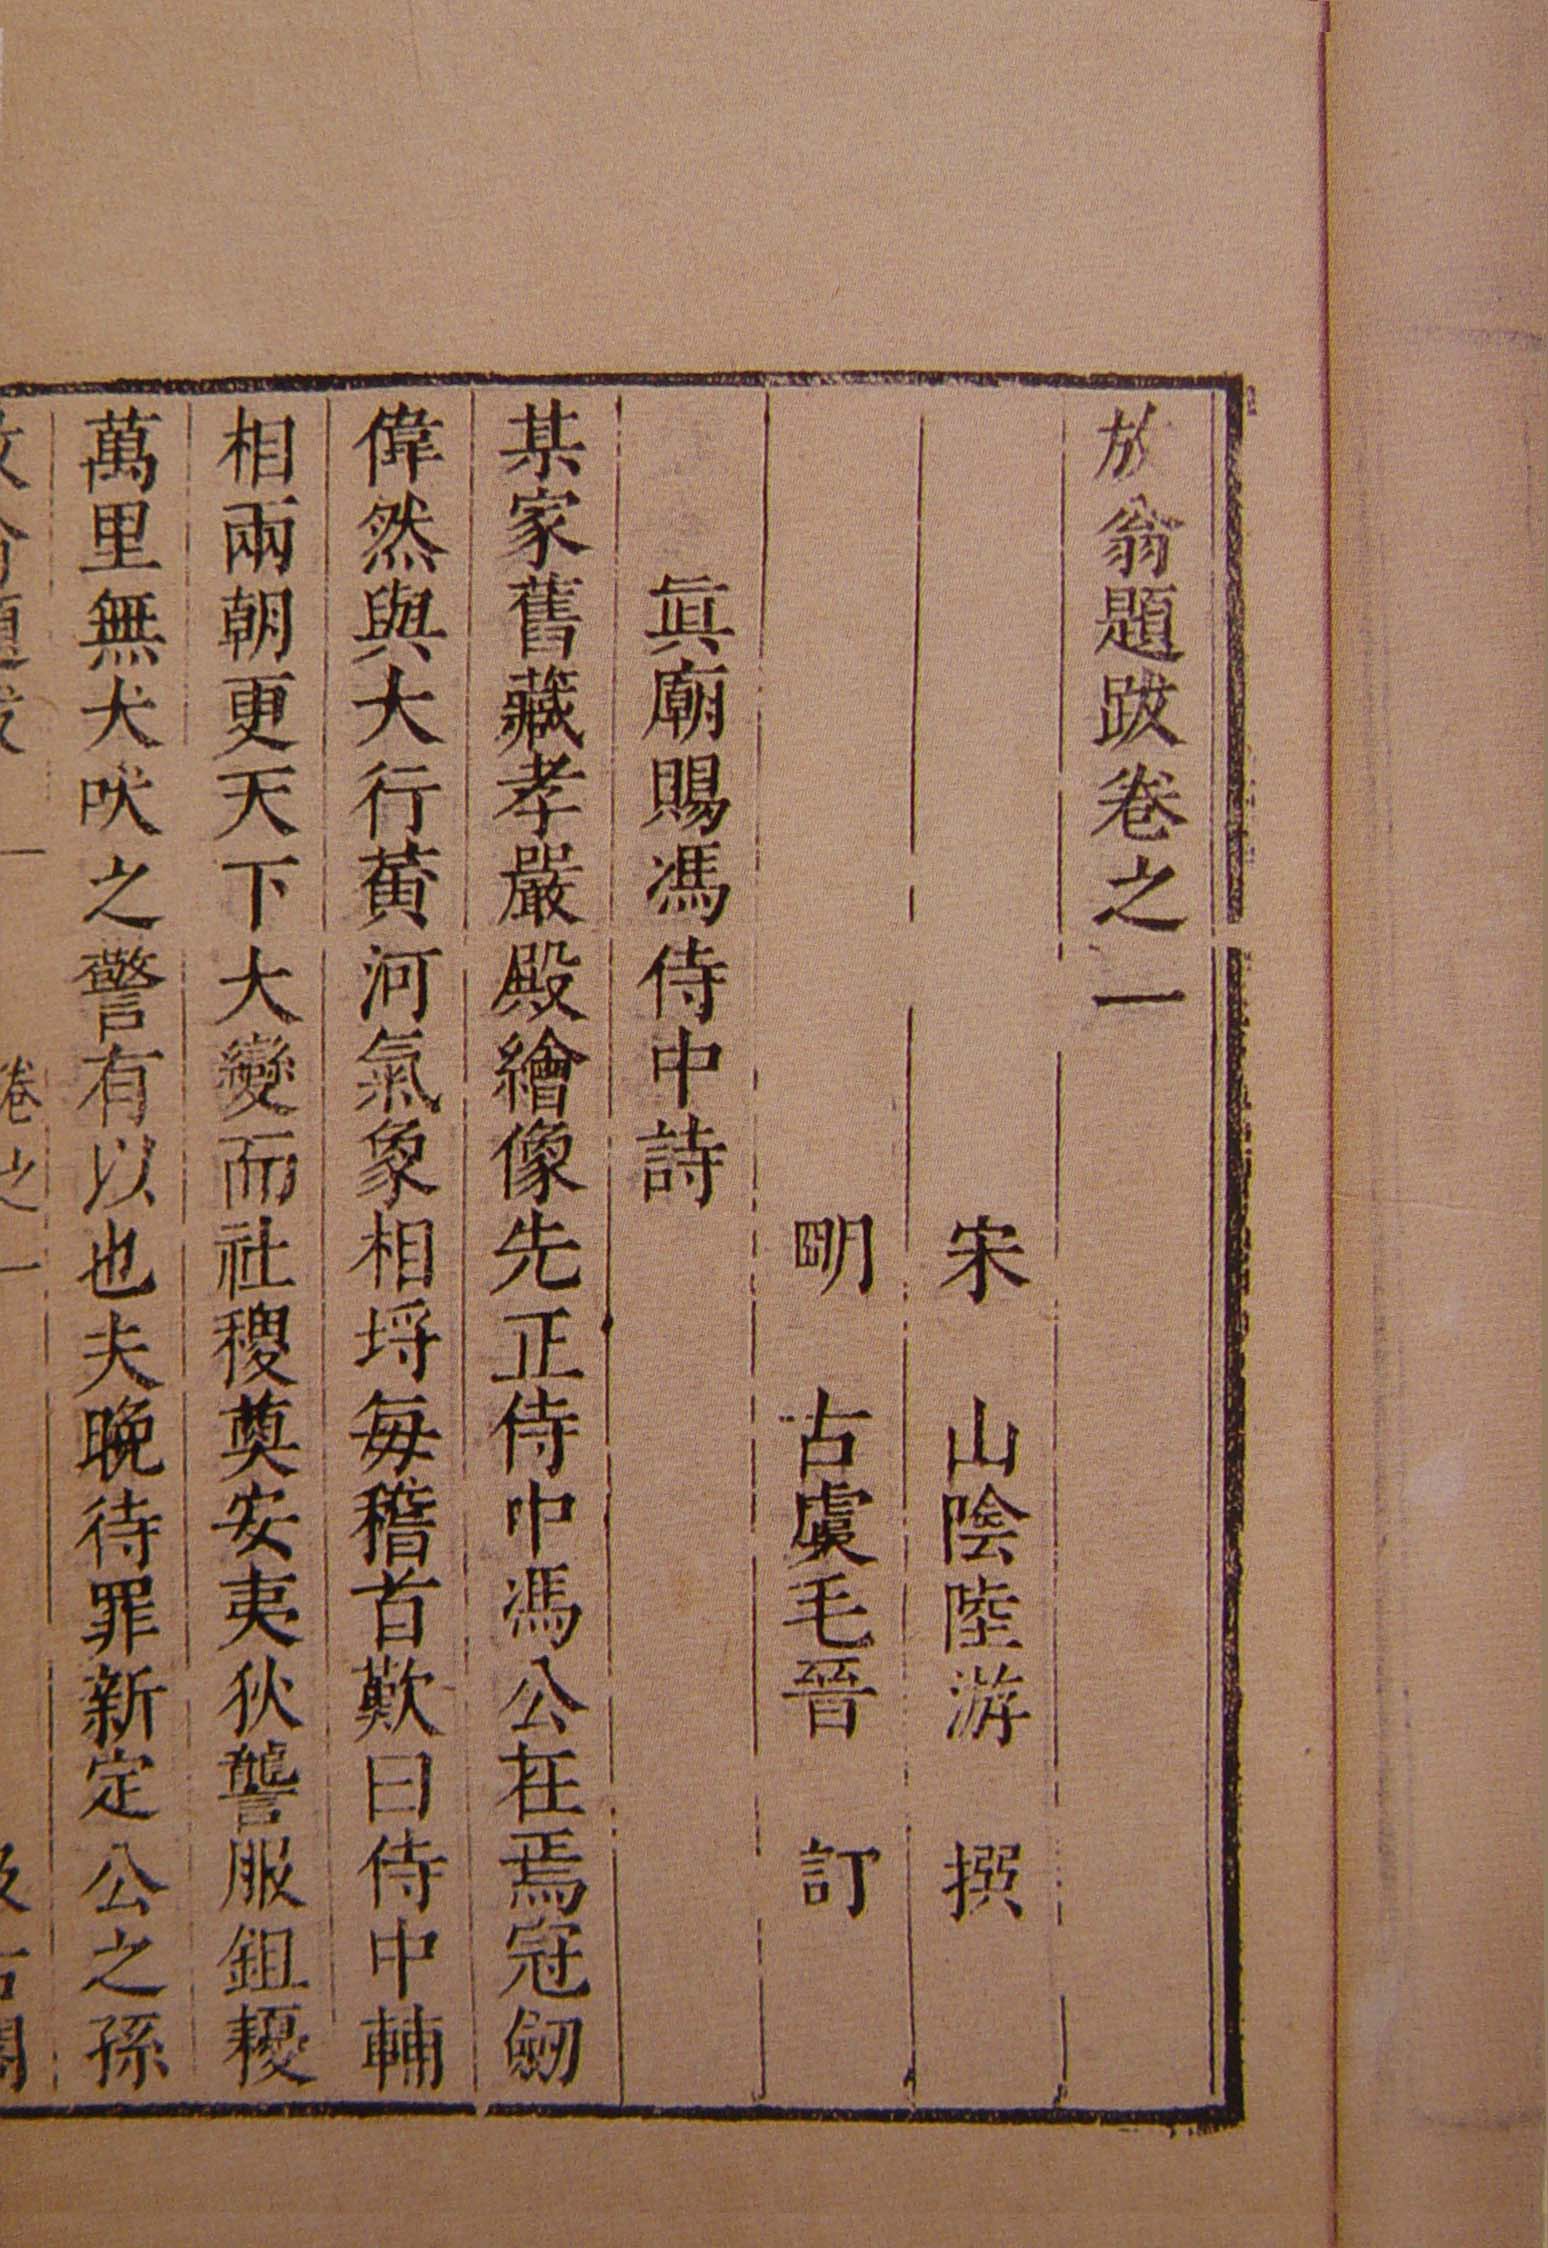 放翁題跋卷之一
宋 山陰陸游 撰
明 古虞毛晉 訂
眞廟賜馮侍中詩
某家舊藏孝嚴殿繪像先正侍中馮公在焉冠劒
偉然與大行黃河氣象相埒每稽首歎曰侍中輔
相兩朝更天下大變而社稷奠安夷狄讋服鉏耰
萬里無犬吠之警有以也夫晚待罪新定公之孫
卷之一